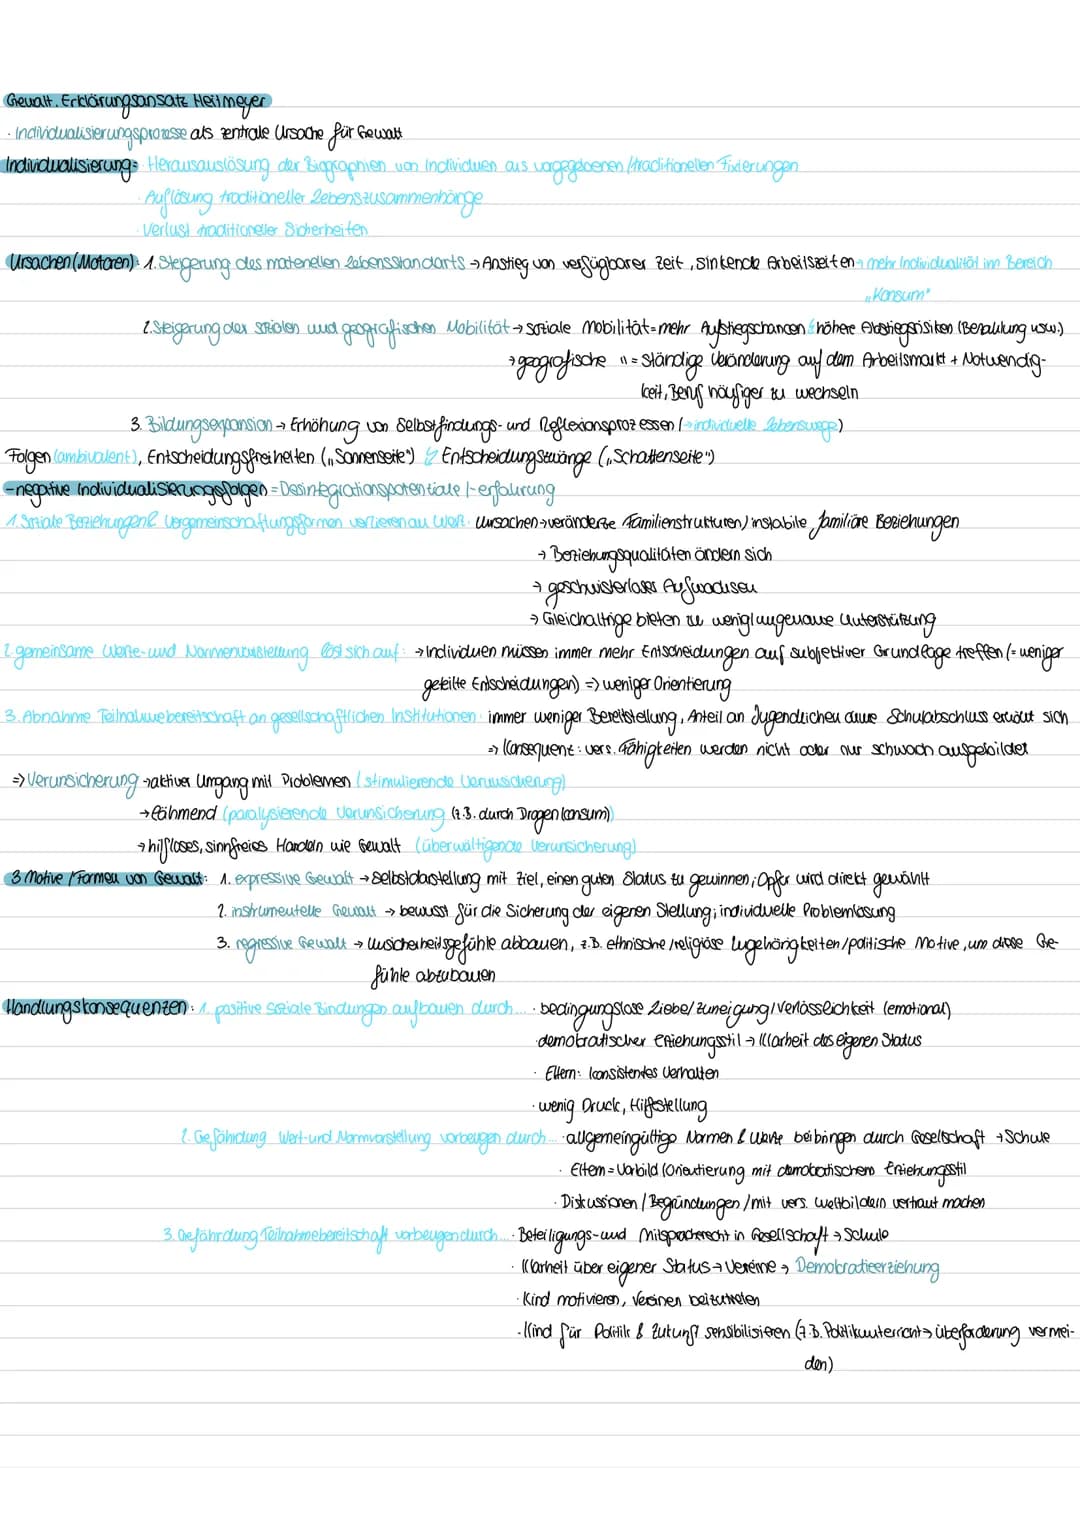 Gewalt. Erklärungsansatz Heitmeyer
· Individualisierungsprozesse als zentrale Ursache für Gewalt
Individualisierung: · Herausauslösung der Biographien von Individuen aus vorgegebenen/traditionellen Fixierungen
· Auflösung traditioneller Lebenszusammenhänge
· Verlust traditioneller Sicherheiten
Ursachen (Motoren): 1. Steigerung des materiellen Lebensstandarts → Anstieg von verfügbarer Zeit, sinkende Arbeitszeiten → mehr Individualität im Bereich
„Konsum"
2. Steigerung der sozialen und geografischen Mobilität → soziale Mobilität = mehr Aufstiegschancen ↯ höhere Abstiegsrisiken (Bezahlung usw.)
→ geografische " = ständige Veränderung auf dem Arbeitsmarkt + Notwendig-
keit, Beruf häufiger zu wechseln
3. Bildungsexpansion → Erhöhung von Selbstfindungs- und Reflexionsprozessen (→ individuelle Lebenswege)
Folgen (ambivalent), Entscheidungsfreiheiten („Sonnenseite") ↯ Entscheidungszwänge („Schattenseite")
- negative Individualisierungsfolgen = Desintegrationspotentiale/-erfahrung
1. Soziale Beziehungen & Vergemeinschaftungsformen verlieren an Wert: Ursachen → veränderte Familienstrukturen/instabile, familiäre Beziehungen
→ Beziehungsqualitäten ändern sich
→ geschwisterloses Aufwachsen
→ Gleichaltrige bieten zu wenig/ungenaue Unterstützung
2. gemeinsame Werte- und Normenvorstellung löst sich auf: → Individuen müssen immer mehr Entscheidungen auf subjektiver Grundlage treffen (= weniger
geteilte Entscheidungen) => weniger Orientierung
3. Abnahme Teilnahmebereitschaft an gesellschaftlichen Institutionen: immer weniger Bereitstellung, Anteil an Jugendlichen ohne Schulabschluss erhöht sich
=> Konsequenz: vers. Fähigkeiten werden nicht oder nur schwach ausgebildet
=> Verunsicherung → aktiver Umgang mit Problemen (stimulierende Verunsicherung)
→ lähmend (paralysierende Verunsicherung (z.B. durch Drogenkonsum))
→ hilfloses, sinnfreies Handeln wie Gewalt (überwältigende Verunsicherung)
3 Motive / Formen von Gewalt: 1. expressive Gewalt → Selbstdarstellung mit Ziel, einen guten Status zu gewinnen; Opfer wird direkt gewählt
2. instrumentelle Gewalt → bewusst für die Sicherung der eigenen Stellung; individuelle Problemlösung
3. regressive Gewalt → Unsicherheitsgefühle abbauen, z.B. ethnische/religiöse Zugehörigkeiten/politische Motive, um diese Ge-
fühle abzubauen
Handlungskonsequenzen: 1. positive Soziale Bindungen aufbauen durch... · bedingungslose Liebe/Zuneigung/Verlässlichkeit (emotional)
· demokratischer Erziehungsstil → Klarheit des eigenen Status
· Eltern: konsistentes Verhalten
· wenig Druck, Hilfestellung
2. Gefährdung Wert- und Normvorstellung vorbeugen durch... · allgemeingültige Normen & Werte beibringen durch Gesellschaft → Schule
· Eltern = Vorbild (Orientierung mit demokratischem Erziehungsstil
· Diskussionen / Begründungen / mit vers. Weltbildern vertraut machen
3. Gefährdung Teilnahmebereitschaft vorbeugen durch... · Beteiligungs- und Mitspracherecht in Gesellschaft → Schule
· Klarheit über eigener Status → Vereine → Demokratieerziehung
· Kind motivieren, Vereinen beizutreten
· Kind für Politik & Zukunft sensibilisieren (z.B. Politikunterricht → überforderung vermei-
den)